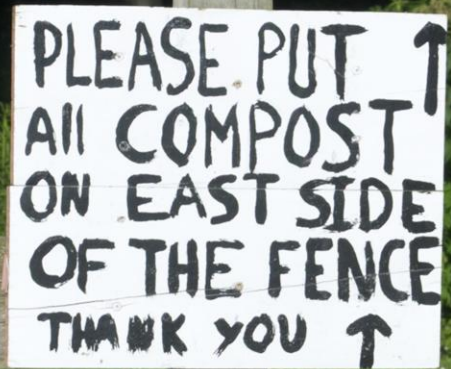 PLEASE PUT ↑
All COMPOST
ON EAST SIDE
OF THE FENCE
THANK YOU ↑